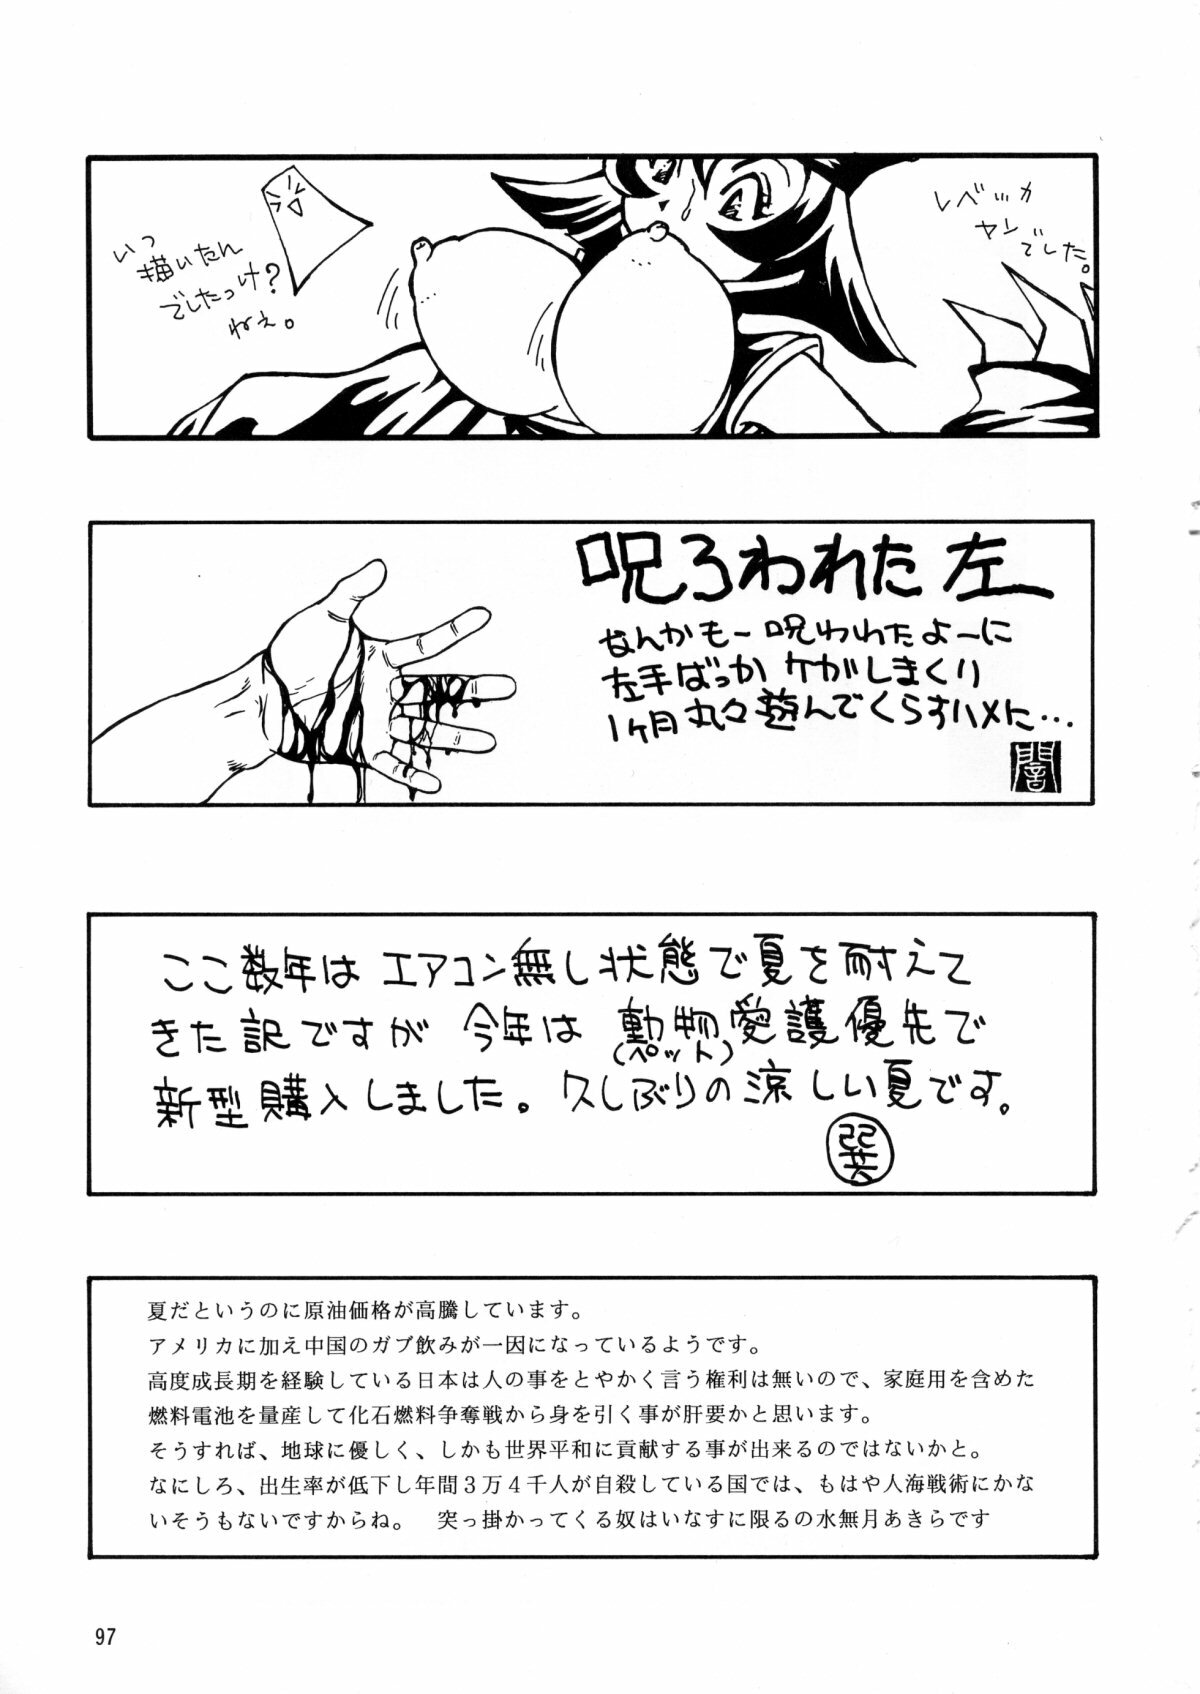 いつ
描いたん
でしたっけ？
ねぇ。
レベッカ
ヤンでした。
呪ろわれた左
なんかもー呪われたよーに
左手ばっかケガしまくり
1ヶ月丸々遊んでくらすハメに…
闇
ここ数年はエアコン無し状態で夏を耐えて
きた訳ですが今年は動物愛護優先で
(ペット)
新型購入しました。久しぶりの涼しい夏です。
巽
夏だというのに原油価格が高騰しています。
アメリカに加え中国のガブ飲みが一因になっているようです。
高度成長期を経験している日本は人の事をとやかく言う権利は無いので、家庭用を含めた
燃料電池を量産して化石燃料争奪戦から身を引く事が肝要かと思います。
そうすれば、地球に優しく、しかも世界平和に貢献する事が出来るのではないかと。
なにしろ、出生率が低下し年間３万４千人が自殺している国では、もはや人海戦術にかな
いそうもないですからね。　突っ掛かってくる奴はいなすに限るの水無月あきらです
97